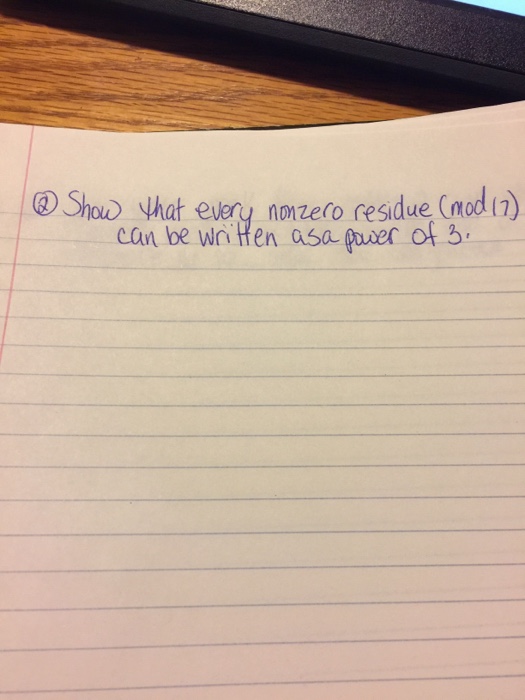 ② Show that every nonzero residue (mod 17)
can be written as a power of 3.